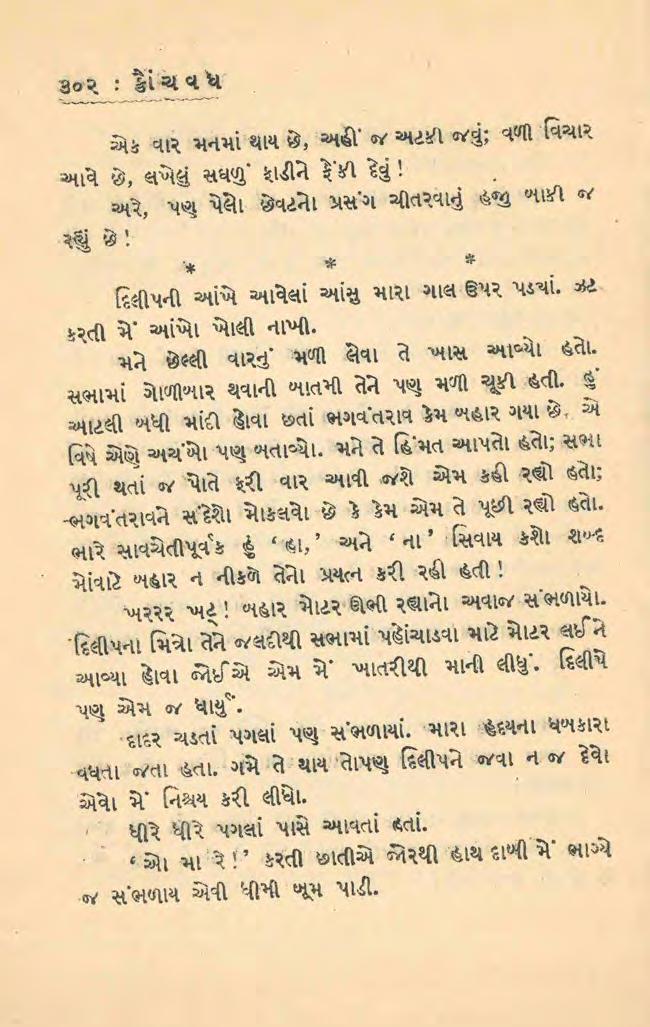 ૩૦૨ : ક્રૌંચવધ
એક વાર મનમાં થાય છે, અહીં જ અટકી જવું; વળી વિચાર
આવે છે, લખેલું સઘળું ફાડીને ફેંકી દેવું !
અરે, પણ પેલો છેવટનો પ્રસંગ ચીતરવાનું હજી બાકી જ
રહ્યું છે !
* * *
દિલીપની આંખે આવેલાં આંસુ મારા ગાલ ઉપર પડ્યાં. ઝટ
કરતી મેં આંખો ખોલી નાખી.
મને છેલ્લી વારનું મળી લેવા તે ખાસ આવ્યો હતો.
સભામાં ગોળીબાર થવાની બાતમી તેને પણ મળી ચૂકી હતી. હું
આટલી બધી માંદી હોવા છતાં ભગવંતરાવ કેમ બહાર ગયા છે. એ
વિષે એણે અચંબો પણ બતાવ્યો. મને તે હિંમત આપતો હતો; સભા
પૂરી થતાં જ પોતે ફરી વાર આવી જશે એમ કહી રહ્યો હતો;
ભગવંતરાવને સંદેશો મોકલવો છે કે કેમ એમ તે પૂછી રહ્યો હતો.
ભારે સાવચેતીપૂર્વક હું ‘ હા,’ અને ‘ ના ’ સિવાય કશો શબ્દ
મોંવાટે બહાર ન નીકળે તેનો પ્રયત્ન કરી રહી હતી !
ખરરર ખટ્ ! બહાર મોટર ઊભી રહ્યાનો અવાજ સંભળાયો.
દિલીપના મિત્રો તેને જલદીથી સભામાં પહોંચાડવા માટે મોટર લઈને
આવ્યા હોવા જોઈએ એમ મેં ખાતરીથી માની લીધું. દિલીપે
પણ એમ જ ધાર્યું.
દાદર ચડતાં પગલાં પણ સંભળાયાં. મારા હૃદયના ધબકારા
વધતા જતા હતા. ગમે તે થાય તોપણ દિલીપને જવા ન જ દેવો
એવો મેં નિશ્ચય કરી લીધો.
ધીરે ધીરે પગલાં પાસે આવતાં હતાં.
‘ ઓ મા રે ! ’ કરતી છાતીએ જોરથી હાથ દાબી મેં ભાગ્યે
જ સંભળાય એવી ધીમી બૂમ પાડી.